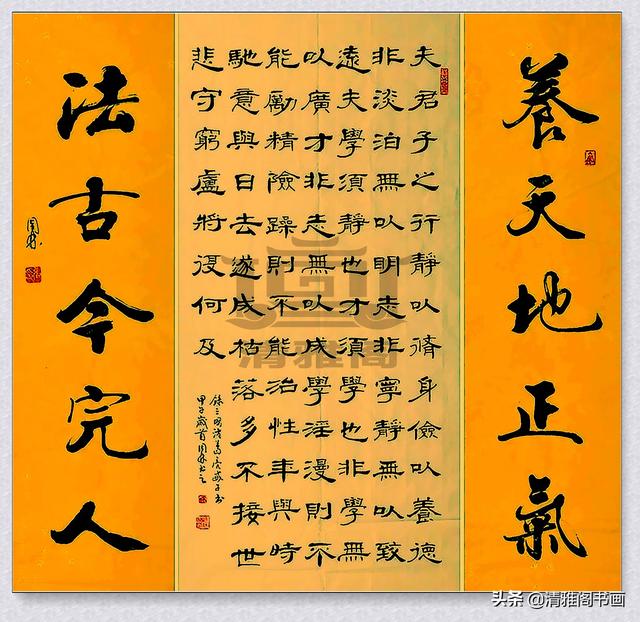 養天地正氣
夫君子之行靜以脩身儉以養德
非淡泊無以明志非寧靜無以致
遠夫學須靜也才須學也非學無
以廣才非志無以成學淫漫則不
能勵精險躁則不能治性年與時
馳意與日去遂成枯落多不接世
悲守窮盧將復何及
錄三國諸葛亮誡子書
甲子歲首
法古今完人
清雅阁
头条 @清雅阁书画